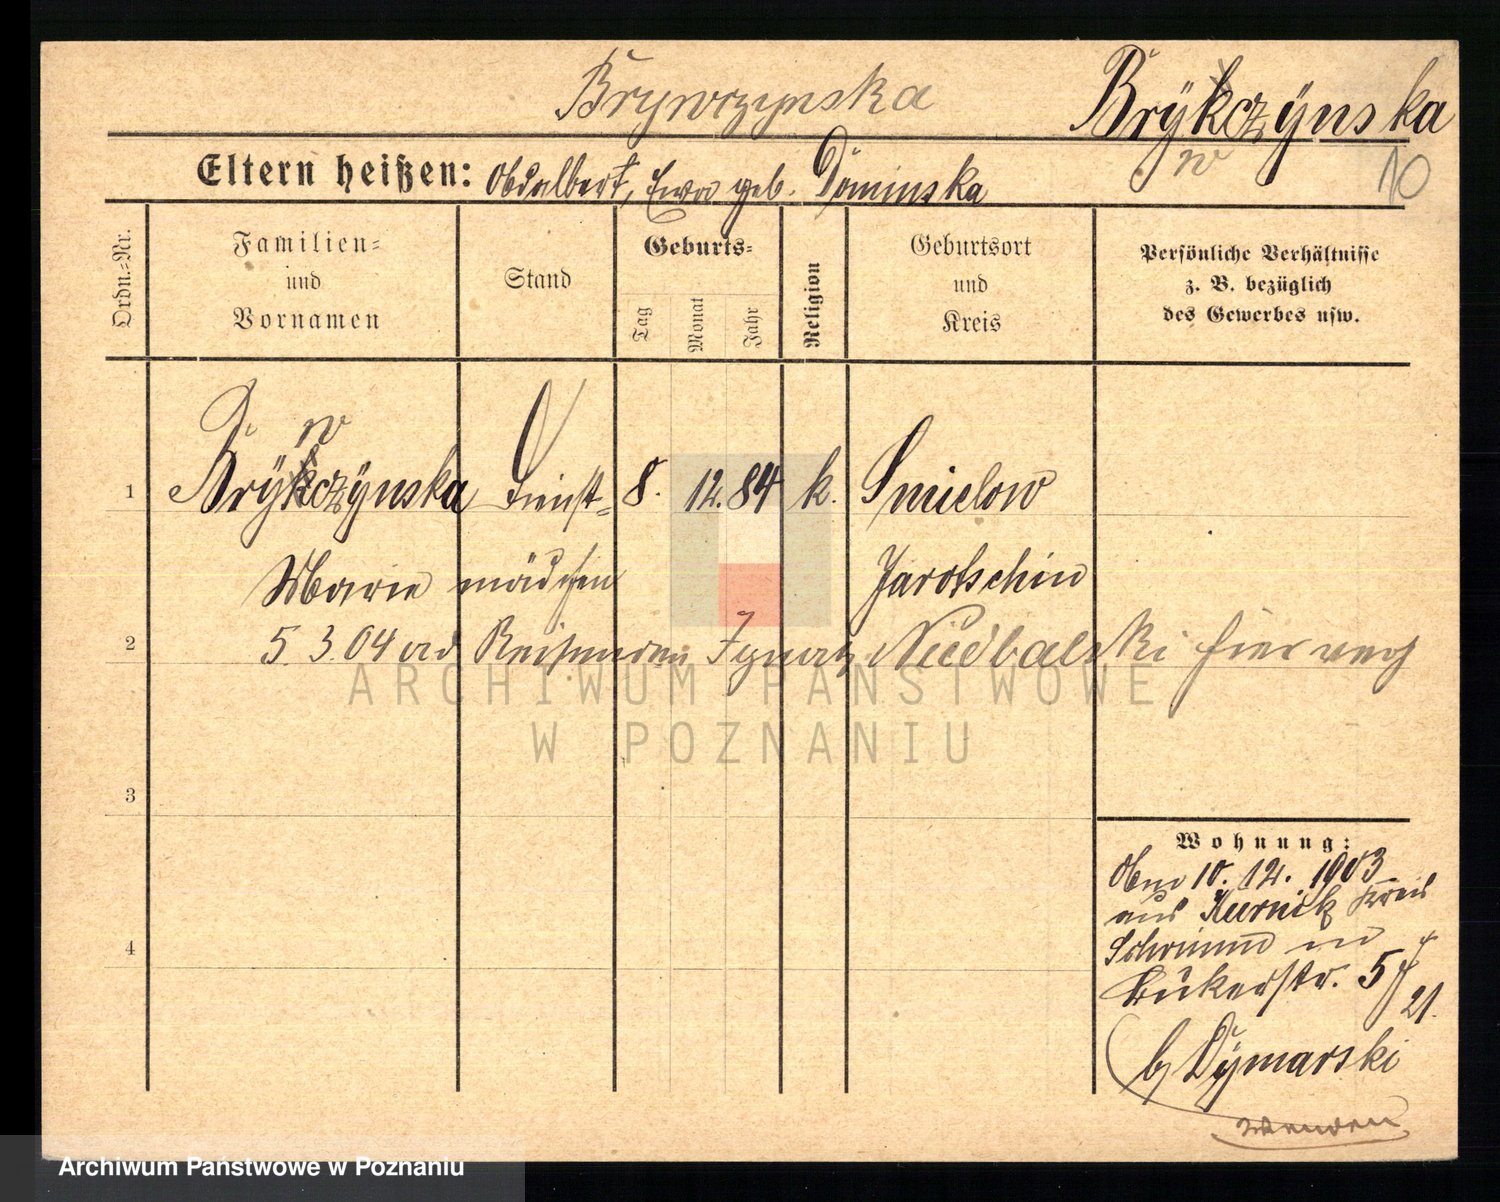 Brywczynska
Brÿkczÿnska
w
10
Eltern heißen: Adalbert, Ewa geb. Dominska
Ordn.=Nr.
Familien=
und
Vornamen
Stand
Geburts=
Tag
Monat
Jahr
Religion
Geburtsort
und
Kreis
Persönliche Verhältnisse
z. B. bezüglich
des Gewerbes usw.
w
1 Brÿkczÿnska Dienst= 8. 12. 84 k. Smielow
Marie mädchen Jarotschin
2 5. 3. 04 Ignatz Niedbalski hier
3
Wohnung:
10. 12. 1903
aus Kurnik Kreis
Schrimm
Bukerstr. 5
21.
b/ Dÿmarski
4
wenden
ARCHIWUM PAŃSTWOWE
W POZNANIU
Archiwum Państwowe w Poznaniu